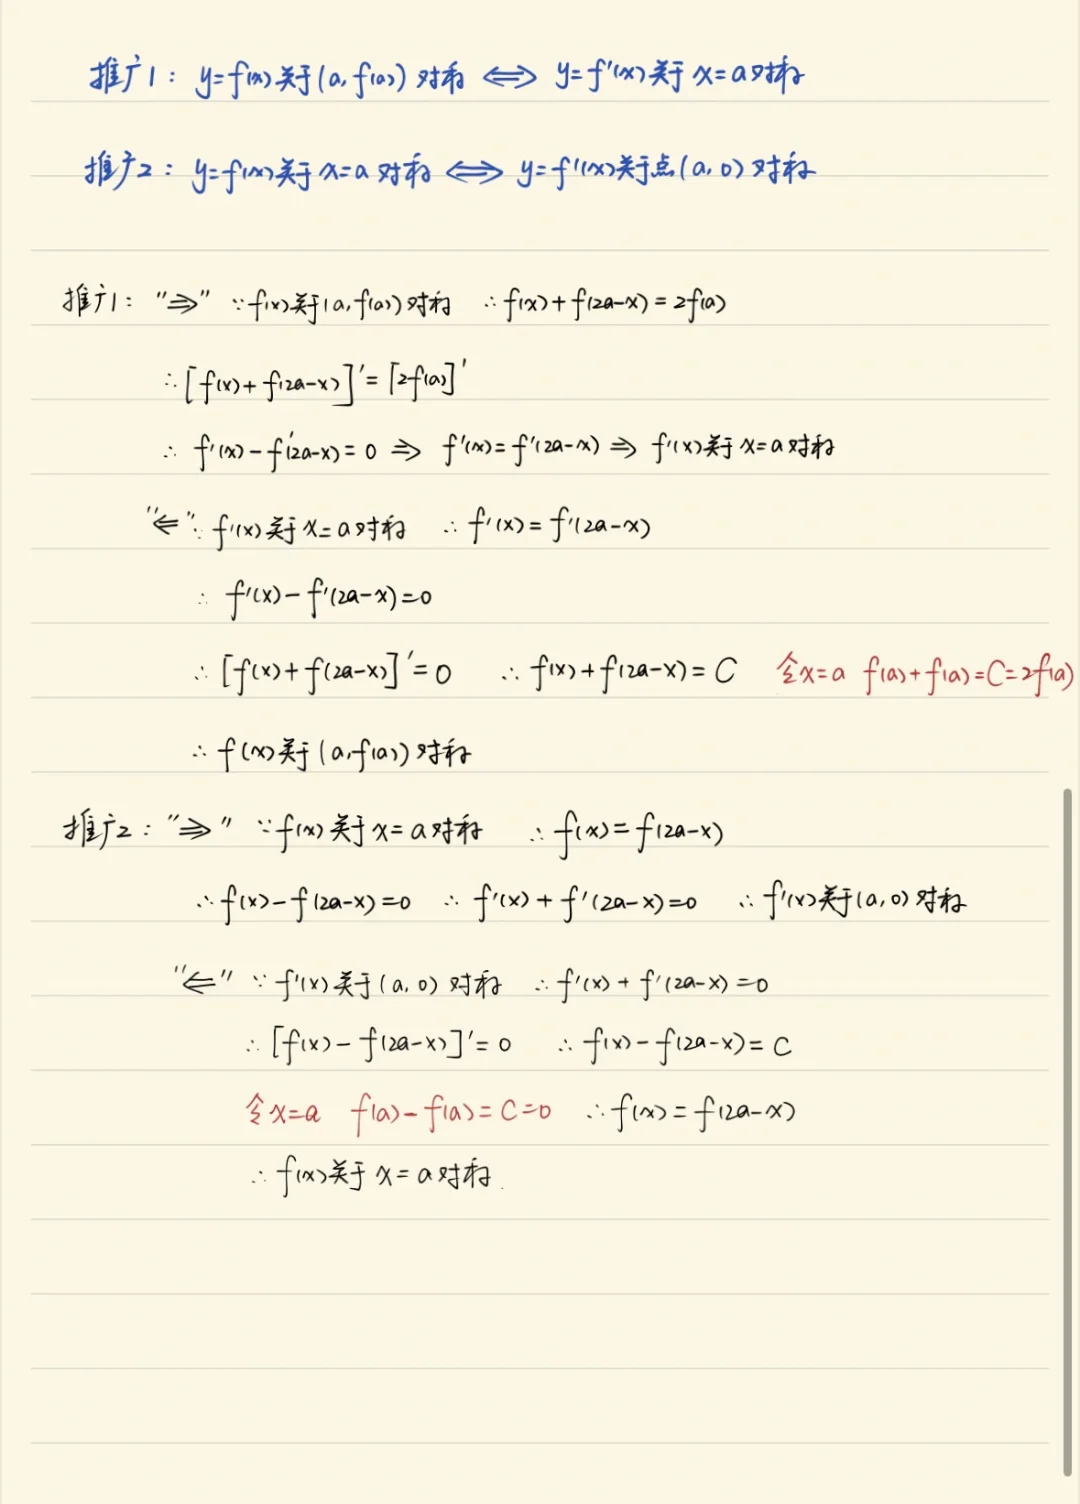 推广1：y=f(x)关于(a,f(a))对称 ⟺ y=f'(x)关于x=a对称
推广2：y=f(x)关于x=a对称 ⟺ y=f'(x)关于点(a,0)对称
推广1："⇒" ∵f(x)关于(a,f(a))对称 ∴f(x)+f(2a-x)=2f(a)
∴[f(x)+f(2a-x)]'=[2f(a)]'
∴ f'(x)-f'(2a-x)=0 ⇒ f'(x)=f'(2a-x) ⇒ f'(x)关于x=a对称
"⇐" ∵ f'(x)关于x=a对称 ∴f'(x)=f'(2a-x)
∴ f'(x)-f'(2a-x)=0
∴[f(x)+f(2a-x)]'=0 ∴f(x)+f(2a-x)=C 令x=a f(a)+f(a)=C=2f(a)
∴f(x)关于(a,f(a))对称
推广2："⇒" ∵f(x)关于x=a对称 ∴f(x)=f(2a-x)
∴f(x)-f(2a-x)=0 ∴f'(x)+f'(2a-x)=0 ∴f'(x)关于(a,0)对称
"⇐" ∵f'(x)关于(a,0)对称 ∴f'(x)+f'(2a-x)=0
∴[f(x)-f(2a-x)]'=0 ∴f(x)-f(2a-x)=C
令x=a f(a)-f(a)=C=0 ∴f(x)=f(2a-x)
∴f(x)关于x=a对称.